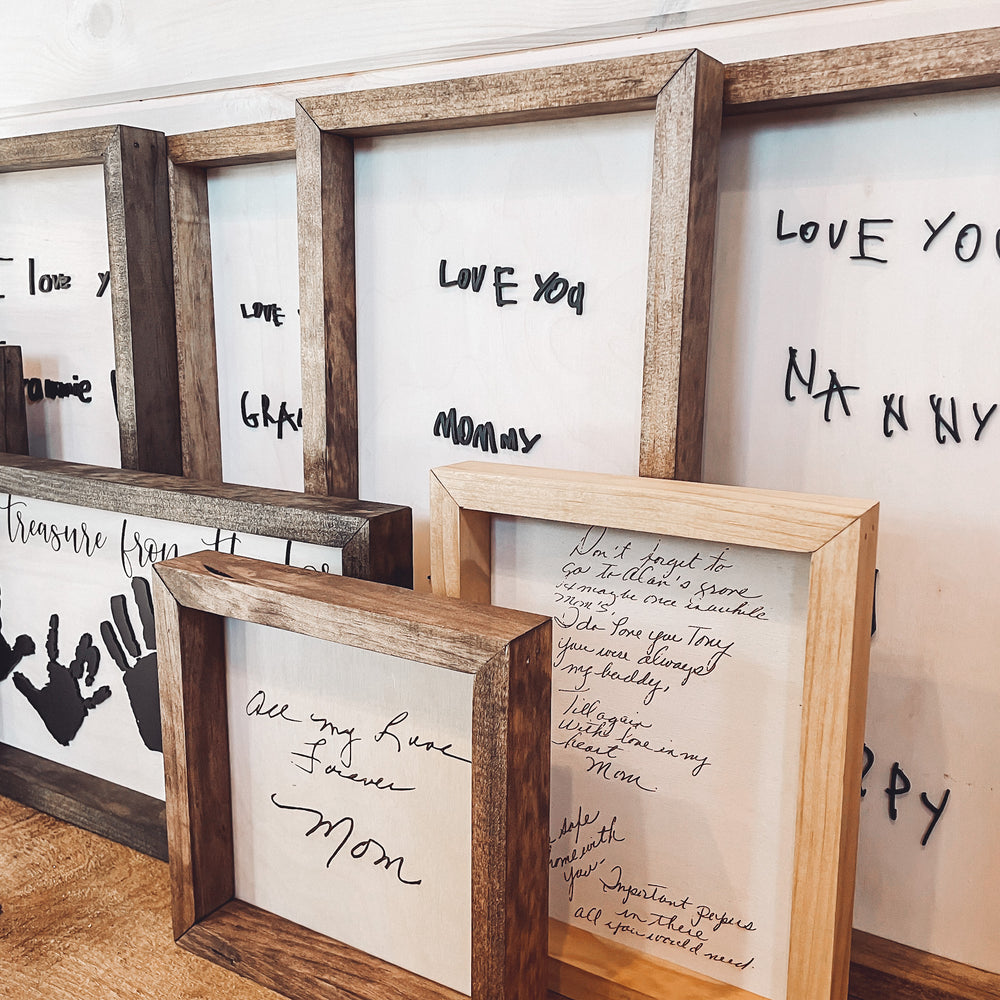 I love y
rannie
LOVE
GRAN
LOVE YOU
MOMMY
LOVE YOU
NANNY
PPY
treasure from the
All my Love
Forever
Mom
Don't forget to
go to Alan's grave
it maybe once in awhile
Mom's.
I do love you Tony
you were always
my buddy,
Till again
With love in my
heart
Mom
safe
home with
you-
Important papers
in there
all you would need.